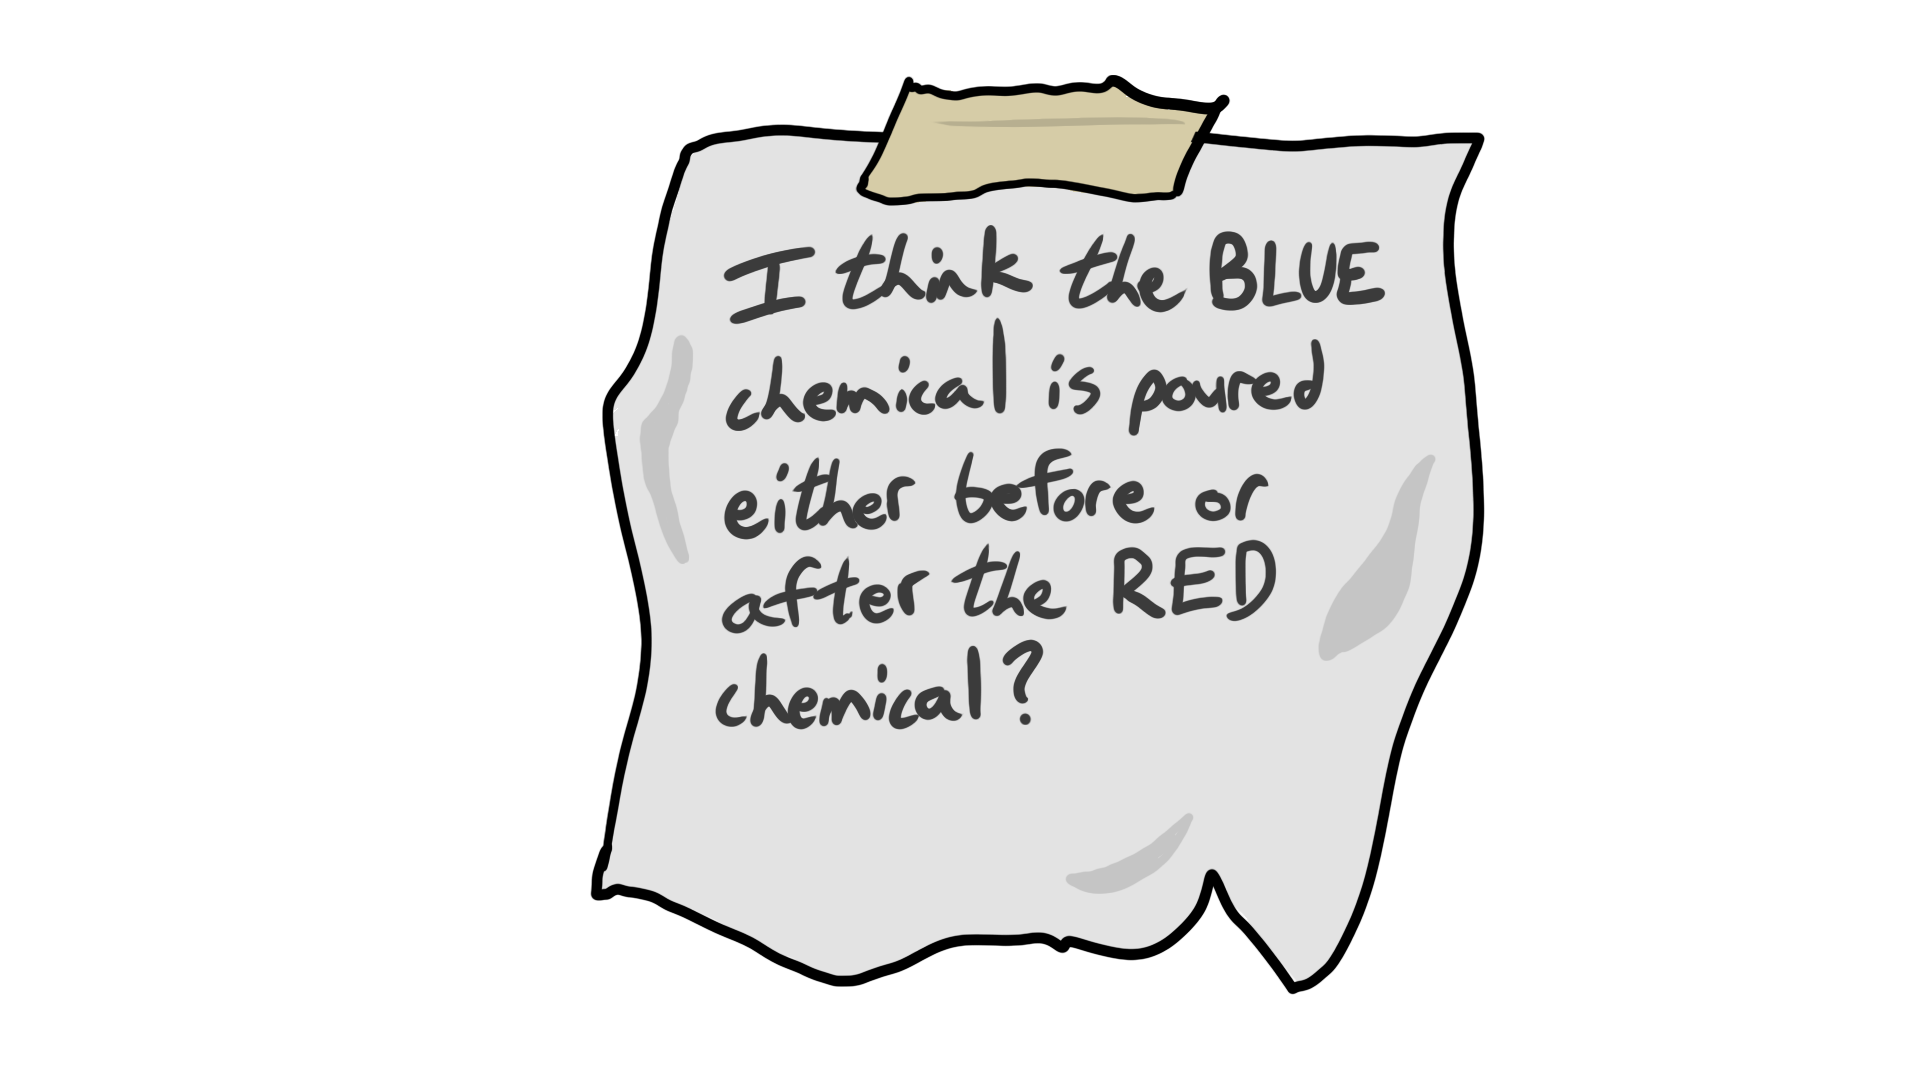 I think the BLUE
chemical is poured
either before or
after the RED
chemical?